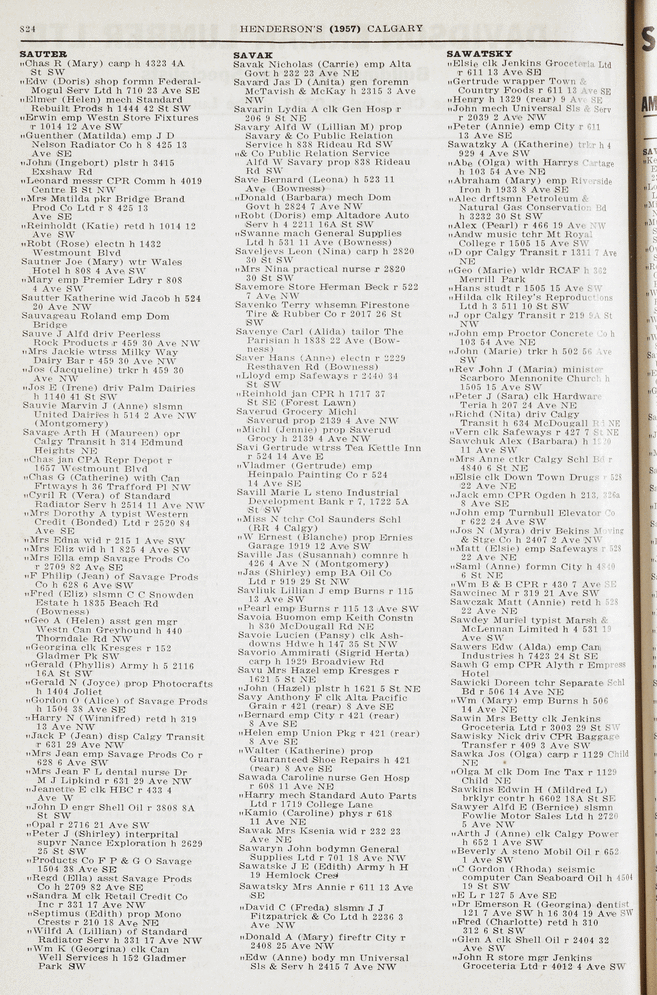 824
HENDERSON'S (1957) CALGARY
SAUTER
„Chas R (Mary) carp h 4323 4A
St SW
„Edw (Doris) shop formn Federal-
Mogul Serv Ltd h 710 23 Ave SE
„Elmer (Helen) mech Standard
Rebuilt Prods h 1444 42 St SW
„Erwin emp Westn Store Fixtures
r 1014 12 Ave SW
„Guenther (Matilda) emp J D
Nelson Radiator Co h 8 425 13
Ave SE
„John (Ingebort) plstr h 3415
Exshaw Rd
„Leonard messr CPR Comm h 4019
Centre B St NW
„Mrs Matilda pkr Bridge Brand
Prod Co Ltd r 8 425 13
Ave SE
„Reinholdt (Katie) retd h 1014 12
Ave SW
„Robt (Rose) electn h 1432
Westmount Blvd
Sautner Joe (Mary) wtr Wales
Hotel h 808 4 Ave SW
„Mary emp Premier Ldry r 808
4 Ave SW
Sautter Katherine wid Jacob h 524
20 Ave NW
Sauvageau Roland emp Dom
Bridge
Sauve J Alfd driv Peerless
Rock Products r 459 30 Ave NW
„Mrs Jackie wtrss Milky Way
Dairy Bar r 459 30 Ave NW
„Jos (Jacqueline) trk h 459 30
Ave NW
„Jos E (Irene) driv Palm Dairies
h 1140 41 St SW
Sauvie Marvin J (Anne) slsmn
United Dairies h 514 2 Ave NW
(Montgomery)
Savage Arth H (Maureen) opr
Calgy Transit h 314 Edmund
Heights NE
„Chas jan CPA Repr Depot r
1657 Westmount Blvd
„Chas G (Catherine) with Can
Frtways h 36 Trafford Pl NW
„Cyril R (Vera) of Standard
Radiator Serv h 2514 11 Ave NW
„Mrs Dorothy A typist Western
Credit (Bonded) Ltd r 2520 84
Ave SE
„Mrs Edna wid r 215 1 Ave SW
„Mrs Eliz wid h 1 825 4 Ave SW
„Mrs Ella emp Savage Prods Co
r 2709 82 Ave SE
„F Philip (Jean) of Savage Prods
Co h 628 6 Ave SW
„Fred (Eliz) slsmn C C Snowden
Estate h 1835 Beach Rd
(Bowness)
„Geo A (Helen) asst gen mgr
Westn Can Greyhound h 440
Thorndale Rd NW
„Georgina clk Kresges r 152
Gladmer Pk SW
„Gerald (Phyllis) Army h 5 2116
16A St SW
„Gerald N (Joyce) prop Photocrafts
h 1404 Joliet
„Gordon O (Alice) of Savage Prods
h 1504 38 Ave SE
„Harry N (Winnifred) retd h 319
13 Ave NW
„Jack P (Jean) disp Calgy Transit
r 631 29 Ave NW
„Mrs Jean emp Savage Prods Co r
628 6 Ave SW
„Mrs Jean F L dental nurse Dr
M J Lipkind r 631 29 Ave NW
„Jeanette E clk HBC r 433 4
Ave W
„John D engr Shell Oil r 3808 8A
St SW
„Opal r 2716 21 Ave SW
„Peter J (Shirley) interprital
supvr Nance Exploration h 2629
25 St SW
„Products Co F P & G O Savage
1504 38 Ave SE
„Regd (Ella) asst Savage Prods
Co h 2709 82 Ave SE
„Sandra M clk Retail Credit Co
Inc r 331 17 Ave NW
„Septimus (Edith) prop Mono
Crests r 210 18 Ave NE
„Wilfd A (Lillian) of Standard
Radiator Serv h 331 17 Ave NW
„Wm K (Georgina) clk Can
Well Services h 152 Gladmer
Park SW
SAVAK
Savak Nicholas (Carrie) emp Alta
Govt h 232 23 Ave NE
Savard Jas D (Anita) gen foremn
McTavish & McKay h 2315 3 Ave
NW
Savarin Lydia A clk Gen Hosp r
206 9 St NE
Savary Alfd W (Lillian M) prop
Savary & Co Public Relation
Service h 838 Rideau Rd SW
„& Co Public Relation Service
Alfd W Savary prop 838 Rideau
Rd SW
Save Bernard (Leona) h 523 11
Ave (Bowness)
„Donald (Barbara) mech Dom
Govt h 2824 7 Ave NW
„Robt (Doris) emp Altadore Auto
Serv h 4 2211 16A St SW
„Swanne mach General Supplies
Ltd h 531 11 Ave (Bowness)
Saveljevs Leon (Nina) carp h 2820
30 St SW
„Mrs Nina practical nurse r 2820
30 St SW
Savemore Store Herman Beck r 522
7 Ave NW
Savenko Terry whsemn Firestone
Tire & Rubber Co r 2017 26 St
SW
Savenye Carl (Alida) tailor The
Parisian h 1838 22 Ave (Bow-
ness)
Saver Hans (Anne) electn r 2229
Resthaven Rd (Bowness)
„Lloyd emp Safeways r 2440 34
St SW
„Reinhold jan CPR h 1717 37
St SE (Forest Lawn)
Saverud Grocery Michl
Saverud prop 2139 4 Ave NW
„Michl (Jennie) prop Saverud
Grocy h 2139 4 Ave NW
Savi Gertrude wtrss Tea Kettle Inn
r 524 14 Ave E
„Vladmer (Gertrude) emp
Heinpalo Painting Co r 524
14 Ave SE
Savill Marie L steno Industrial
Development Bank r 7, 1722 5A
St SW
„Miss N tchr Col Saunders Schl
(RR 4 Calgy)
„W Ernest (Blanche) prop Ernies
Garage 1919 12 Ave SW
Saville Jas (Susannah) comnre h
426 4 Ave N (Montgomery)
„Jas (Shirley) emp BA Oil Co
Ltd r 919 29 St NW
Savliuk Lillian J emp Burns r 115
13 Ave SW
„Pearl emp Burns r 115 13 Ave SW
Savoia Buomon emp Keith Constn
h 830 McDougall Rd NE
Savoie Lucien (Pansy) clk Ash-
downs Hdwe h 147 35 St NW
Savorio Ammirati (Sigrid Herta)
carp h 1929 Broadview Rd
Savu Mrs Hazel emp Kresges r
1621 5 St NE
„John (Hazel) plstr h 1621 5 St NE
Savy Anthony F clk Alta Pacific
Grain r 421 (rear) 8 Ave SE
„Bernard emp City r 421 (rear)
8 Ave SE
„Helen emp Union Pkg r 421 (rear)
8 Ave SE
„Walter (Katherine) prop
Guaranteed Shoe Repairs h 421
(rear) 8 Ave SE
Sawada Caroline nurse Gen Hosp
r 608 11 Ave NE
„Harry mech Standard Auto Parts
Ltd r 1719 College Lane
„Kamio (Caroline) phys r 618
11 Ave NE
Sawak Mrs Ksenia wid r 232 23
Ave NE
Sawaryn John bodymn General
Supplies Ltd r 701 18 Ave NW
Sawatske J E (Edith) Army h H
19 Hemlock Cres
Sawatsky Mrs Annie r 611 13 Ave
SE
„David C (Freda) slsmn J J
Fitzpatrick & Co Ltd h 2236 3
Ave NW
„Donald A (Mary) fireftr City r
2408 25 Ave NW
„Edw (Anne) body mn Universal
Sls & Serv h 2415 7 Ave NW
SAWATSKY
„Elsie clk Jenkins Groceteria Ltd
r 611 13 Ave SE
„Gertrude wrapper Town &
Country Foods r 611 13 Ave SE
„Henry h 1329 (rear) 9 Ave SE
„John mech Universal Sls & Serv
r 2039 2 Ave NW
„Peter (Annie) emp City r 611
13 Ave SE
Sawatzky A (Katherine) trkr h 4
929 4 Ave SW
„Abe (Olga) with Harrys Cartage
h 103 54 Ave NE
„Abraham (Mary) emp Riverside
Iron h 1933 8 Ave SE
„Alec drftsmn Petroleum &
Natural Gas Conservation Bd
h 3232 30 St SW
„Alex (Pearl) r 466 19 Ave NW
„Andw music tchr Mt Royal
College r 1505 15 Ave SW
„D opr Calgy Transit r 1311 7 Ave
NE
„Geo (Marie) wldr RCAF h 362
Merrill Park
„Hans studt r 1505 15 Ave SW
„Hilda clk Riley's Reproductions
Ltd h 3 511 10 St SW
„J opr Calgy Transit r 219 9A St
NW
„John emp Proctor Concrete Co h
103 54 Ave NE
„John (Marie) trkr h 502 56 Ave
SW
„Rev John J (Maria) minister
Scarboro Mennonite Church h
1505 15 Ave SW
„Peter J (Sara) clk Hardware
Teria h 207 24 Ave NE
„Richd (Nita) driv Calgy
Transit h 634 McDougall Rd NE
„Vern clk Safeways r 427 7 St NE
Sawchuk Alex (Barbara) h
11 Ave SW
„Mrs Anne ctkr Calgy Schl Bd r
4840 6 St NE
„Elsie clk Down Town Drugs r 528
22 Ave NE
„Jack emp CPR Ogden h 213, 326a
8 Ave SE
„John emp Turnbull Elevator Co
r 622 24 Ave SW
„Jos N (Myra) driv Bekins Moving
& Stge Co h 2407 2 Ave NW
„Matt (Elsie) emp Safeways r 528
22 Ave NE
„Saml (Anne) formn City h 4840
6 St NE
„Wm B & B CPR r 430 7 Ave SE
Sawcinec M r 319 21 Ave SW
Sawczak Matt (Annie) retd h 528
22 Ave NE
Sawdey Muriel typist Marsh &
McLennan Limited h 4 531 19
Ave SW
Sawers Edw (Alda) emp Can
Industries h 7423 24 St SE
Sawh G emp CPR Alyth r Empress
Hotel
Sawicki Doreen tchr Separate Schl
Bd r 506 14 Ave NE
„Wm (Mary) emp Burns h 506
14 Ave NE
Sawin Mrs Betty clk Jenkins
Groceteria Ltd r 3003 29 St SW
Sawisky Nick driv CPR Baggage
Transfer r 409 3 Ave SW
Sawka Jos (Olga) carp r 1129 Child
NE
„Olga M clk Dom Inc Tax r 1129
Child NE
Sawkins Edwin H (Mildred L)
brklyr contr h 6602 18A St SE
Sawyer Alfd E (Bernice) slsmn
Fowlie Motor Sales Ltd h 2720
5 Ave NW
„Arth J (Anne) clk Calgy Power
h 652 1 Ave SW
„Beverly A steno Mobil Oil r 652
1 Ave SW
„C Gordon (Rhoda) seismic
computer Can Seaboard Oil h 4504
19 St SW
„E L r 127 5 Ave SE
„Dr Emerson R (Georgina) dentist
121 7 Ave SW h 16 304 19 Ave SW
„Fred (Charlotte) retd h 310
312 6 St SW
„Glen A clk Shell Oil r 2404 32
Ave SW
„John R store mgr Jenkins
Groceteria Ltd r 4012 4 Ave SW